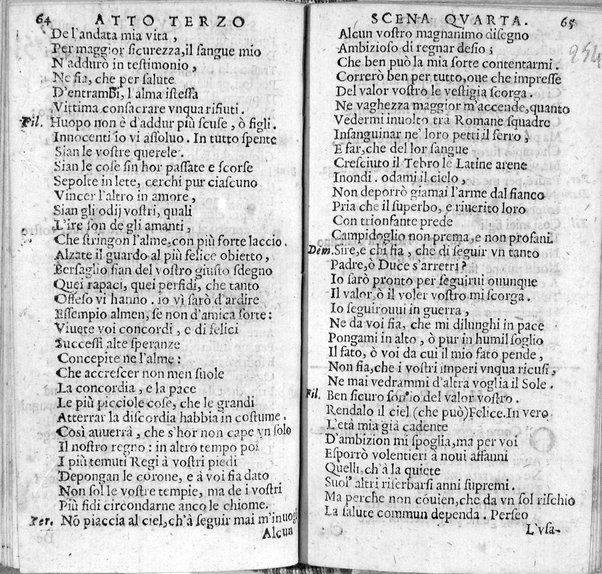 64 ATTO TERZO
De l'andata mia vita,
Per maggior sicurezza, il sangue mio
N'addurò in testimonio,
Ne fia, che per salute
D'entrambi, l'alma istessa
Vittima consacrare vnqua rifiuti.
Fil. Huopo non è d'addur più scuse, ò figli.
Innocenti io vi assoluo. In tutto spente
Sian le vostre querele.
Sian le cose sin hor passate e scorse
Sepolte in lete, cerchi pur ciascuno
Vincer l'altro in amore,
Sian gli odij vostri, quali
L'ire son de gli amanti,
Che stringon l'alme, con più forte laccio.
Alzate il guardo al più felice obietto,
Bersaglio sian del vostro giusto sdegno
Quei rapaci, quei perfidi, che tanto
Offeso vi hanno. io vi sarò d'ardire
Essempio almen, se non d'amica sorte:
Viuete voi concordi, e di felici
Successi alte speranze
Concepite ne l'alme:
Che accrescer non men suole
La concordia, e la pace
Le più picciole cose, che le grandi
Atterrar la discordia habbia in costume.
Così auuerrà, che s'hor non cape vn solo
Il nostro regno: in altro tempo poi
I più temuti Regi à vostri piedi
Depongan le corone, e à voi fia dato
Non sol le vostre tempie, ma de i vostri
Più fidi circondarne anco le chiome.
Per. Nõ piaccia al ciel, ch'à seguir mai m'inuogli
Alcun
SCENA QVARTA. 65
254
Alcun vostro magnanimo disegno
Ambizioso di regnar desio;
Che ben può la mia sorte contentarmi.
Correrò ben per tutto, oue che impresse
Del valor vostro le vestigia scorga.
Ne vaghezza maggior m'accende, quanto
Vedermi inuolto trà Romane squadre
Insanguinar ne' loro petti il ferro,
E far, che del lor sangue
Cresciuto il Tebro le Latine arene
Inondi. odami il cielo,
Non deporrò giamai l'arme dal fianco
Pria che il superbo, e riuerito loro
Con trionfante prede
Campidoglio non prema, e non profani.
Dem. Sire, e chi fia, che di seguir vn tanto
Padre, ò Duce s'arretri?
Io sarò pronto per seguirui ouunque
Il valor, ò il voler vostro mi scorga.
Io seguirouui in guerra,
Ne da voi fia, che mi dilunghi in pace
Pongami in alto, ò pur in humil soglio
Il fato, ò voi da cui il mio fato pende,
Non fia, che i vostri imperi vnqua ricusi,
Ne mai vedrammi d'altra voglia il Sole.
Fil. Ben sicuro son io del valor vostro.
Rendalo il ciel (che può) Felice. In vero
L'età mia già cadente
D'ambizion mi spoglia, ma per voi
Esporrò volentieri à noui affanni
Quelli, ch'à la quiete
Suoi altri riserbarsi anni supremi.
Ma perche non cõuien, che da vn sol rischio
La salute commun dependa. Perseo
L'vsa-